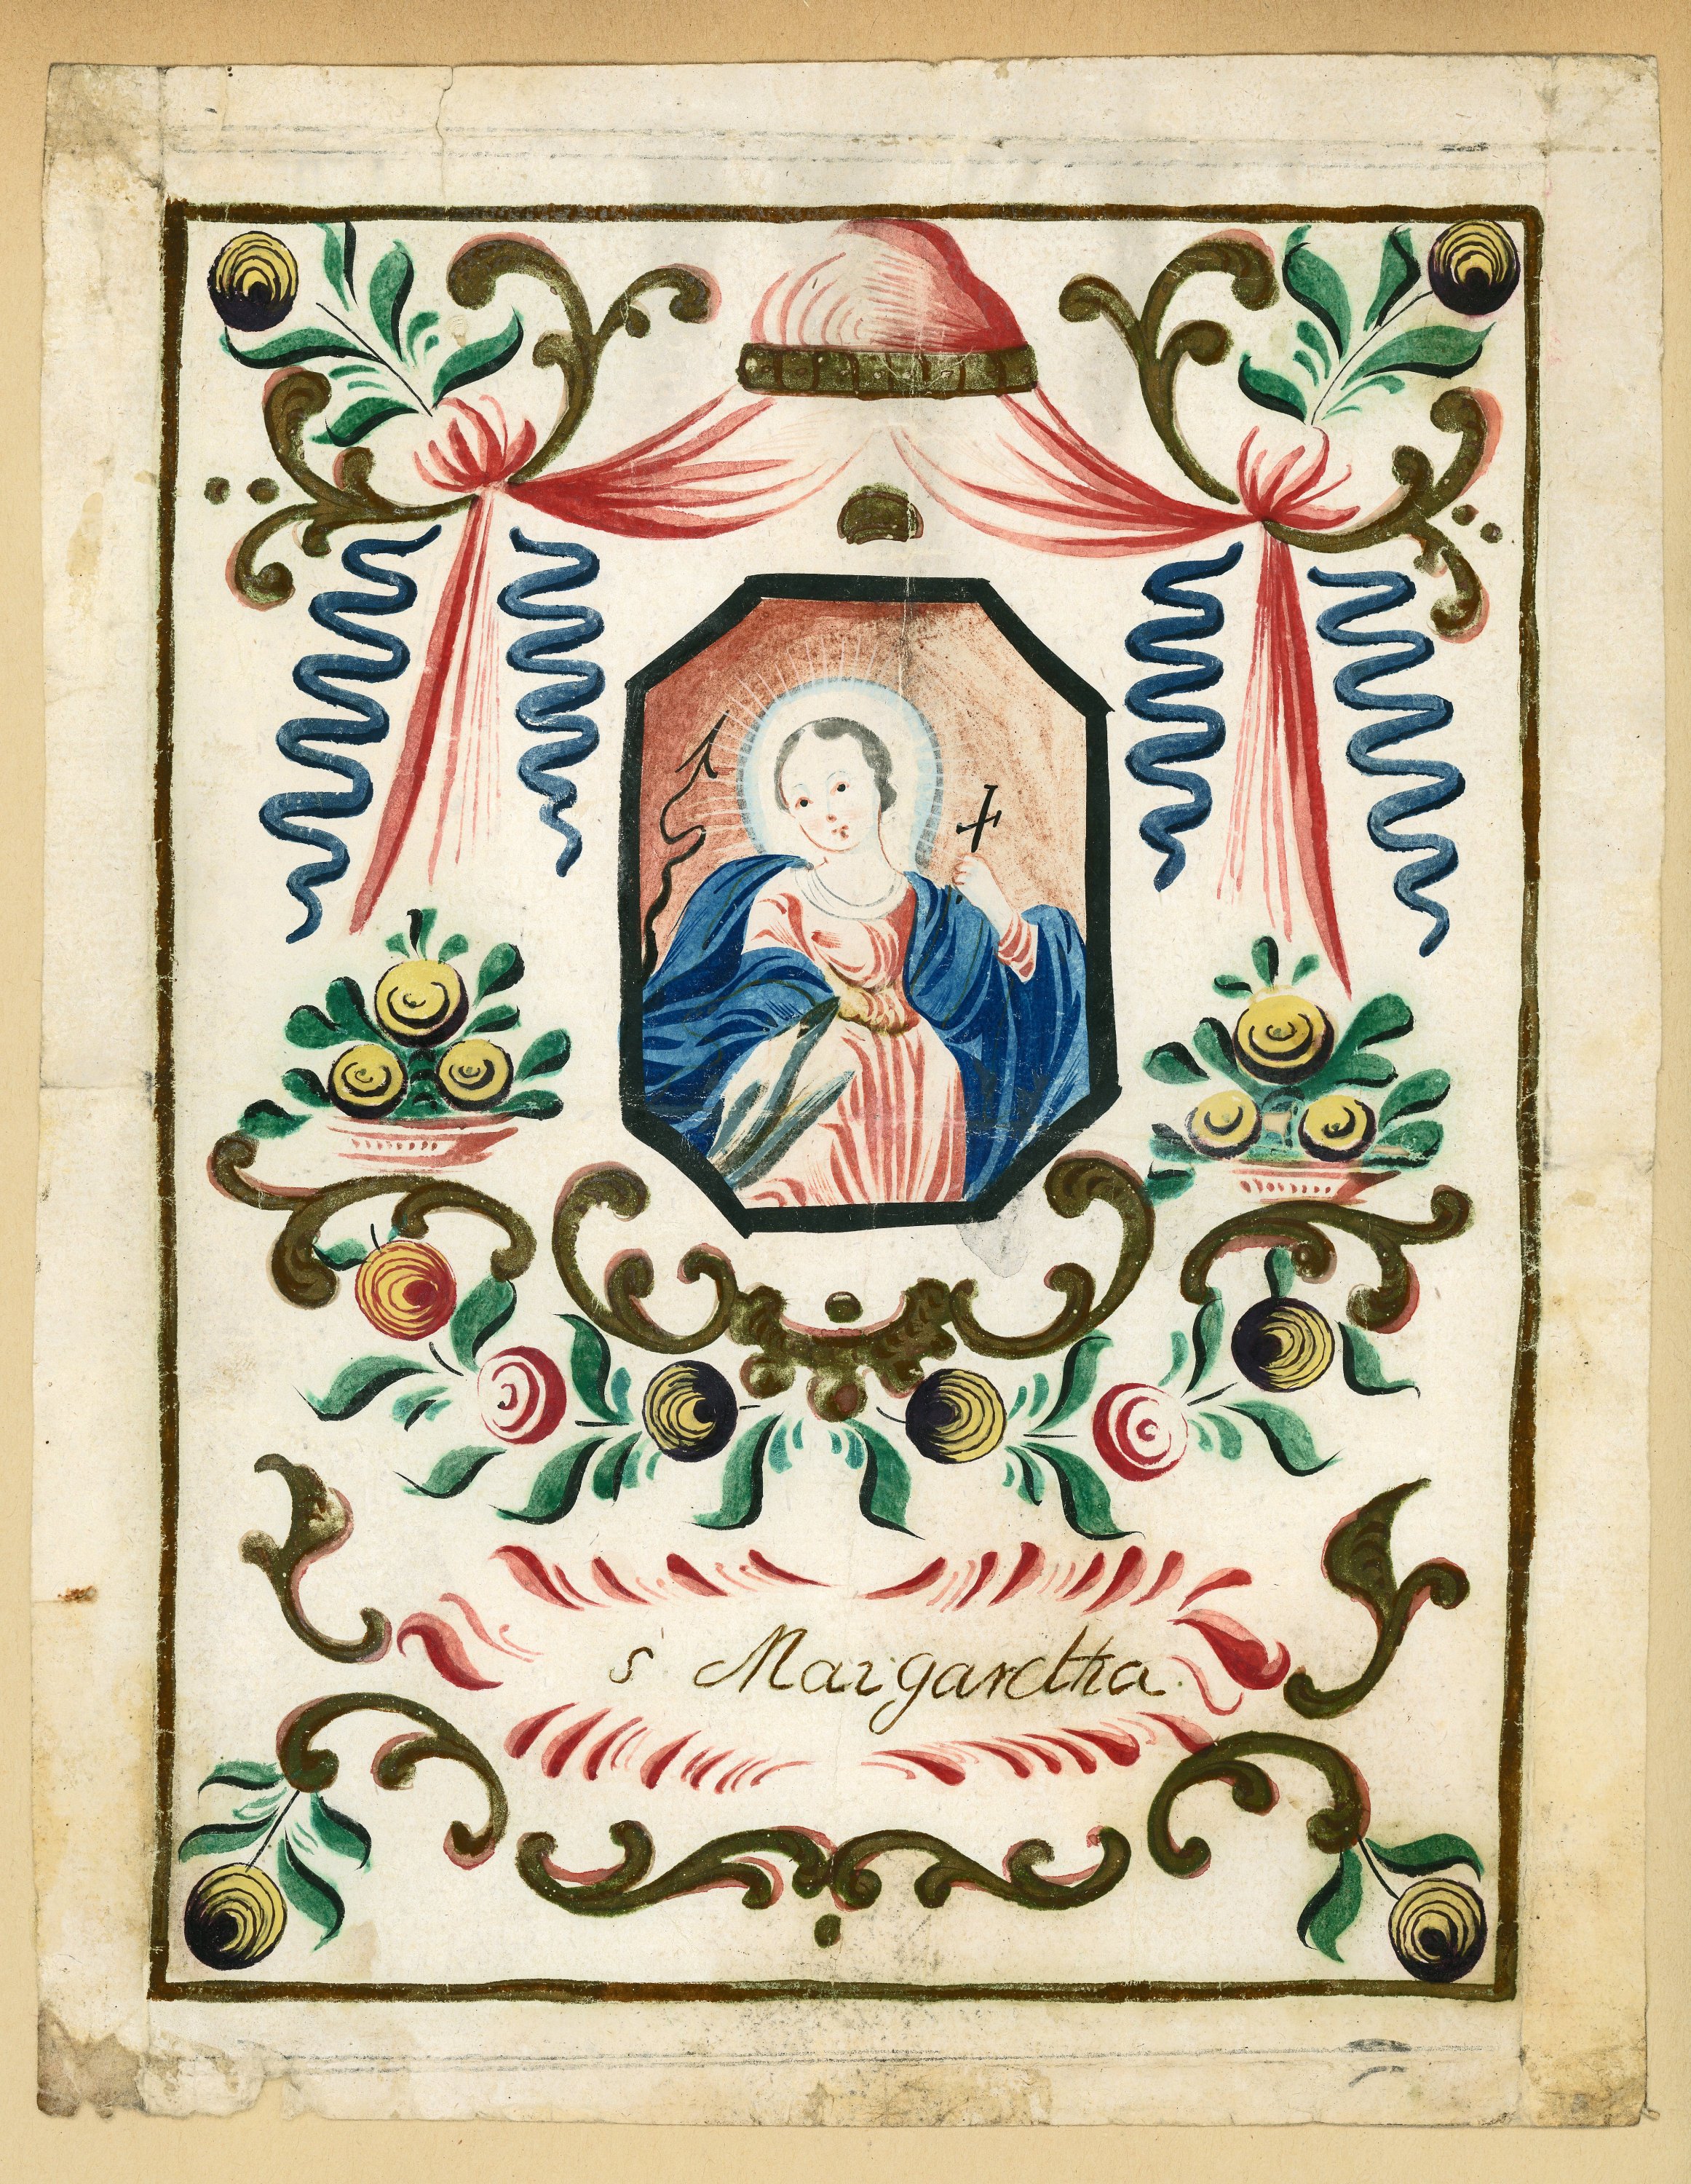 s Margaretha.